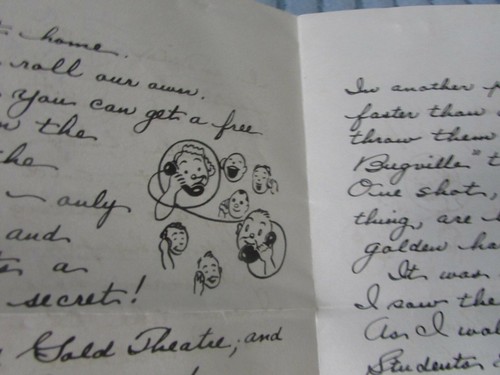 home.
roll our own.
You can get a free
the
the
only
and
a
secret!
Gold Theatre, and
In another
faster than
throw them
Bugville"
One shot,
thing, are
golden
It was
I saw the
As I
Students